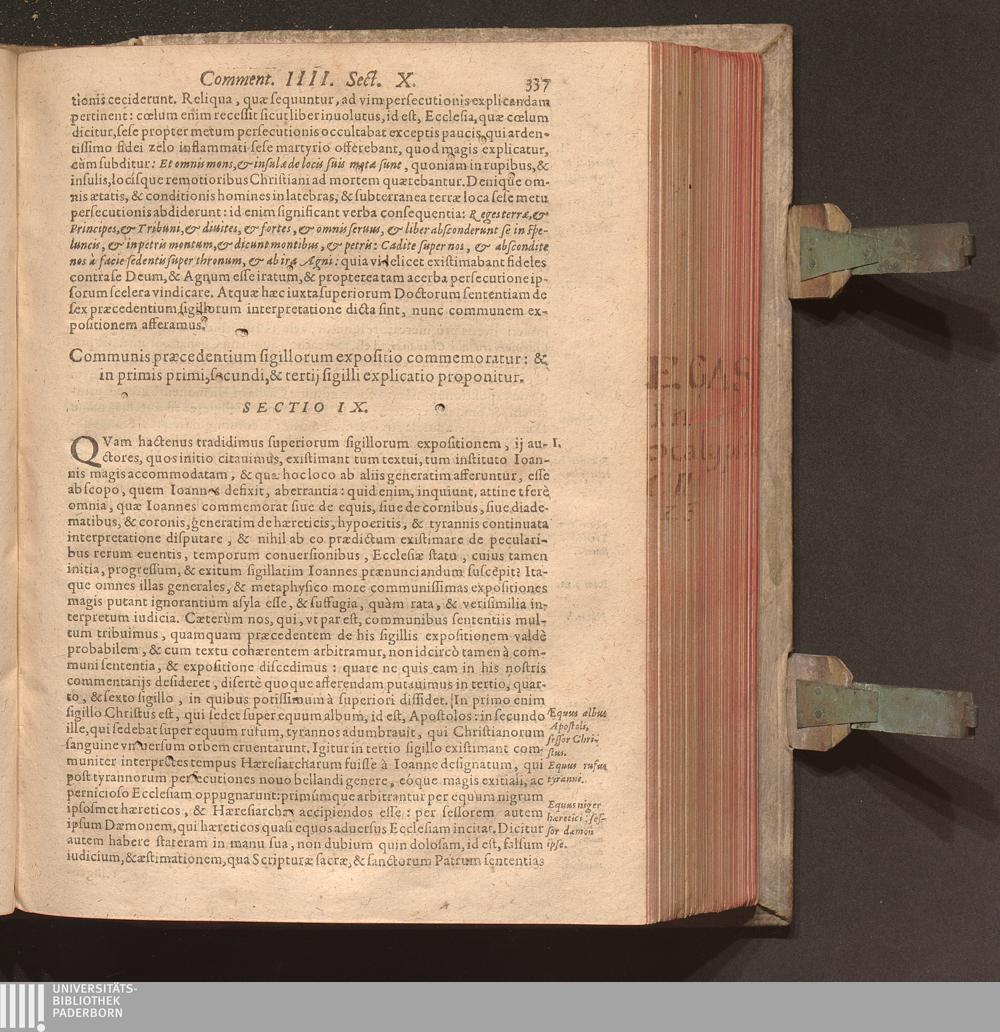 Comment. IIII. Sect. X. 337
tionis ceciderunt. Reliqua, quæ sequuntur, ad vim persecutionis explicandam
pertinent: cœlum enim recessit sicut liber inuolutus, id est, Ecclesia, quæ cœlum
dicitur, sese propter metum persecutionis occultabat exceptis paucis, qui arden-
tissimo fidei zelo inflammati sese martyrio offerebant, quod magis explicatur,
cùm subditur: Et omnis mons, & insulæ de locis suis motæ sunt, quoniam in rupibus, &
insulis, locísque remotioribus Christiani ad mortem quærebantur. Denique om-
nis ætatis, & conditionis homines in latebras, & subterranea terræ loca sese metu
persecutionis abdiderunt: id enim significant verba consequentia: Reges terræ, &
Principes, & Tribuni, & diuites, & fortes, & omnis seruus, & liber absconderunt se in spe-
luncis, & in petris montium, & dicunt montibus, & petris: Cadite super nos, & abscondite
nos à facie sedentis super thronum, & ab ira Agni: quia videlicet existimabant fideles
contra se Deum, & Agnum esse iratum, & propterea tam acerba persecutione ip-
sorum scelera vindicare. Atquæ hæc iuxta superiorum Doctorum sententiam de
sex præcedentium sigillorum interpretatione dicta sint, nunc communem ex-
positionem afferamus.
Communis præcedentium sigillorum expositio commemoratur: &
in primis primi, secundi, & tertij sigilli explicatio proponitur.
SECTIO IX.
QVam hactenus tradidimus superiorum sigillorum expositionem, ij au- I.
ctores, quos initio citauimus, existimant tum textui, tum instituto Ioan-
nis magis accommodatam, & quæ hoc loco ab aliis generatim afferuntur, esse
ab scopo, quem Ioannes defixit, aberrantia: quid enim, inquiunt, attinet ferè
omnia, quæ Ioannes commemorat siue de equis, siue de cornibus, siue diade-
matibus, & coronis, generatim de hæreticis, hypocritis, & tyrannis continuata
interpretatione disputare, & nihil ab eo prædictum existimare de peculari-
bus rerum euentis, temporum conuersionibus, Ecclesiæ statu, cuius tamen
initia, progressum, & exitum sigillatim Ioannes prænunciandum suscepit? Ita-
que omnes illas generales, & metaphysico more communissimas expositiones
magis putant ignorantium asyla esse, & suffugia, quàm rata, & verisimilia in-
terpretum iudicia. Cæterùm nos, qui, vt par est, communibus sententiis mul-
tum tribuimus, quamquam præcedentem de his sigillis expositionem valdè
probabilem, & cum textu cohærentem arbitramur, non idcircò tamen à com-
muni sententia, & expositione discedimus: quare ne quis eam in his nostris
commentarijs desideret, disertè quoque afferendam putauimus in tertio, quar-
to, & sexto sigillo, in quibus potissimum à superiori dissidet. In primo enim
sigillo Christus est, qui sedet super equum album, id est, Apostolos: in secundo
ille, qui sedebat super equum rufum, tyrannos adumbrauit, qui Christianorum
sanguine vniuersum orbem cruentarunt. Igitur in tertio sigillo existimant com-
muniter interpretes tempus Hæresiarcharum fuisse à Ioanne designatum, qui
post tyrannorum persecutiones nouo bellandi genere, eóque magis exitiali, ac
pernicioso Ecclesiam oppugnarunt: primúmque arbitrantur per equum nigrum
ipsosmet hæreticos, & Hæresiarchas accipiendos esse: per sessorem autem
ipsum Dæmonem, qui hæreticos quasi equos aduersus Ecclesiam incitat. Dicitur
autem habere stateram in manu sua, non dubium quin dolosam, id est, falsum
iudicium, & æstimationem, qua Scripturæ sacræ, & sanctorum Patrum sententias
Equus albus
Apostoli,
sessor Chri-
stus.
Equus rufus
tyranni.
Equus niger
hæretici, ses-
sor dæmon
ipse.
In
UNIVERSITÄTS-
BIBLIOTHEK
PADERBORN